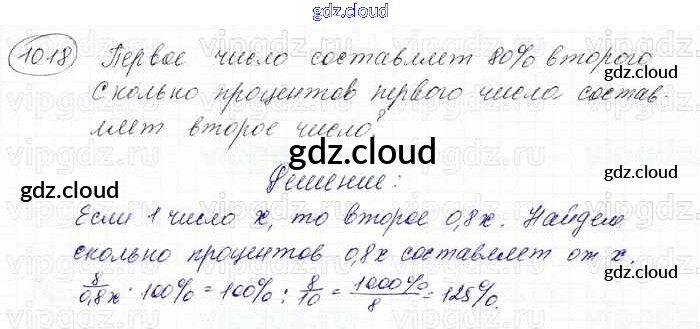 gdz.cloud
1018 Первое число составляет 80% второго
gdz.cloud
Сколько процентов первого числа состав
gdz.cloud
ляет второе число?
gdz.cloud
gdz.cloud
Решение:
gdz.cloud
Если 1 число x, то второе 0,8x. Найдем
сколько процентов 0,8x составляет от x.
8/0,8x · 100% = 100% : 8/10 = 1000%/8 = 125%.
gdz.cloud
gdz.cloud